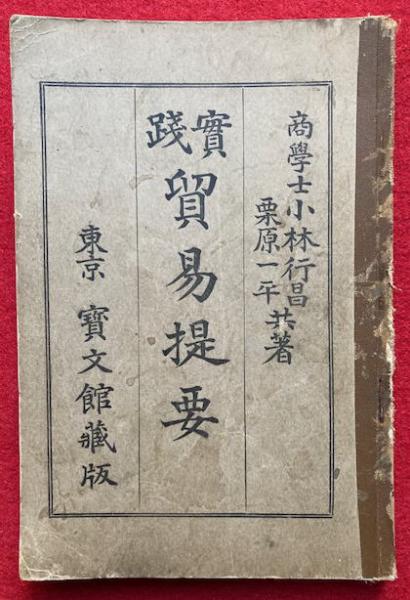 商學士小林行昌
栗原一平共著
實踐
貿易提要
東京 寶文館藏版